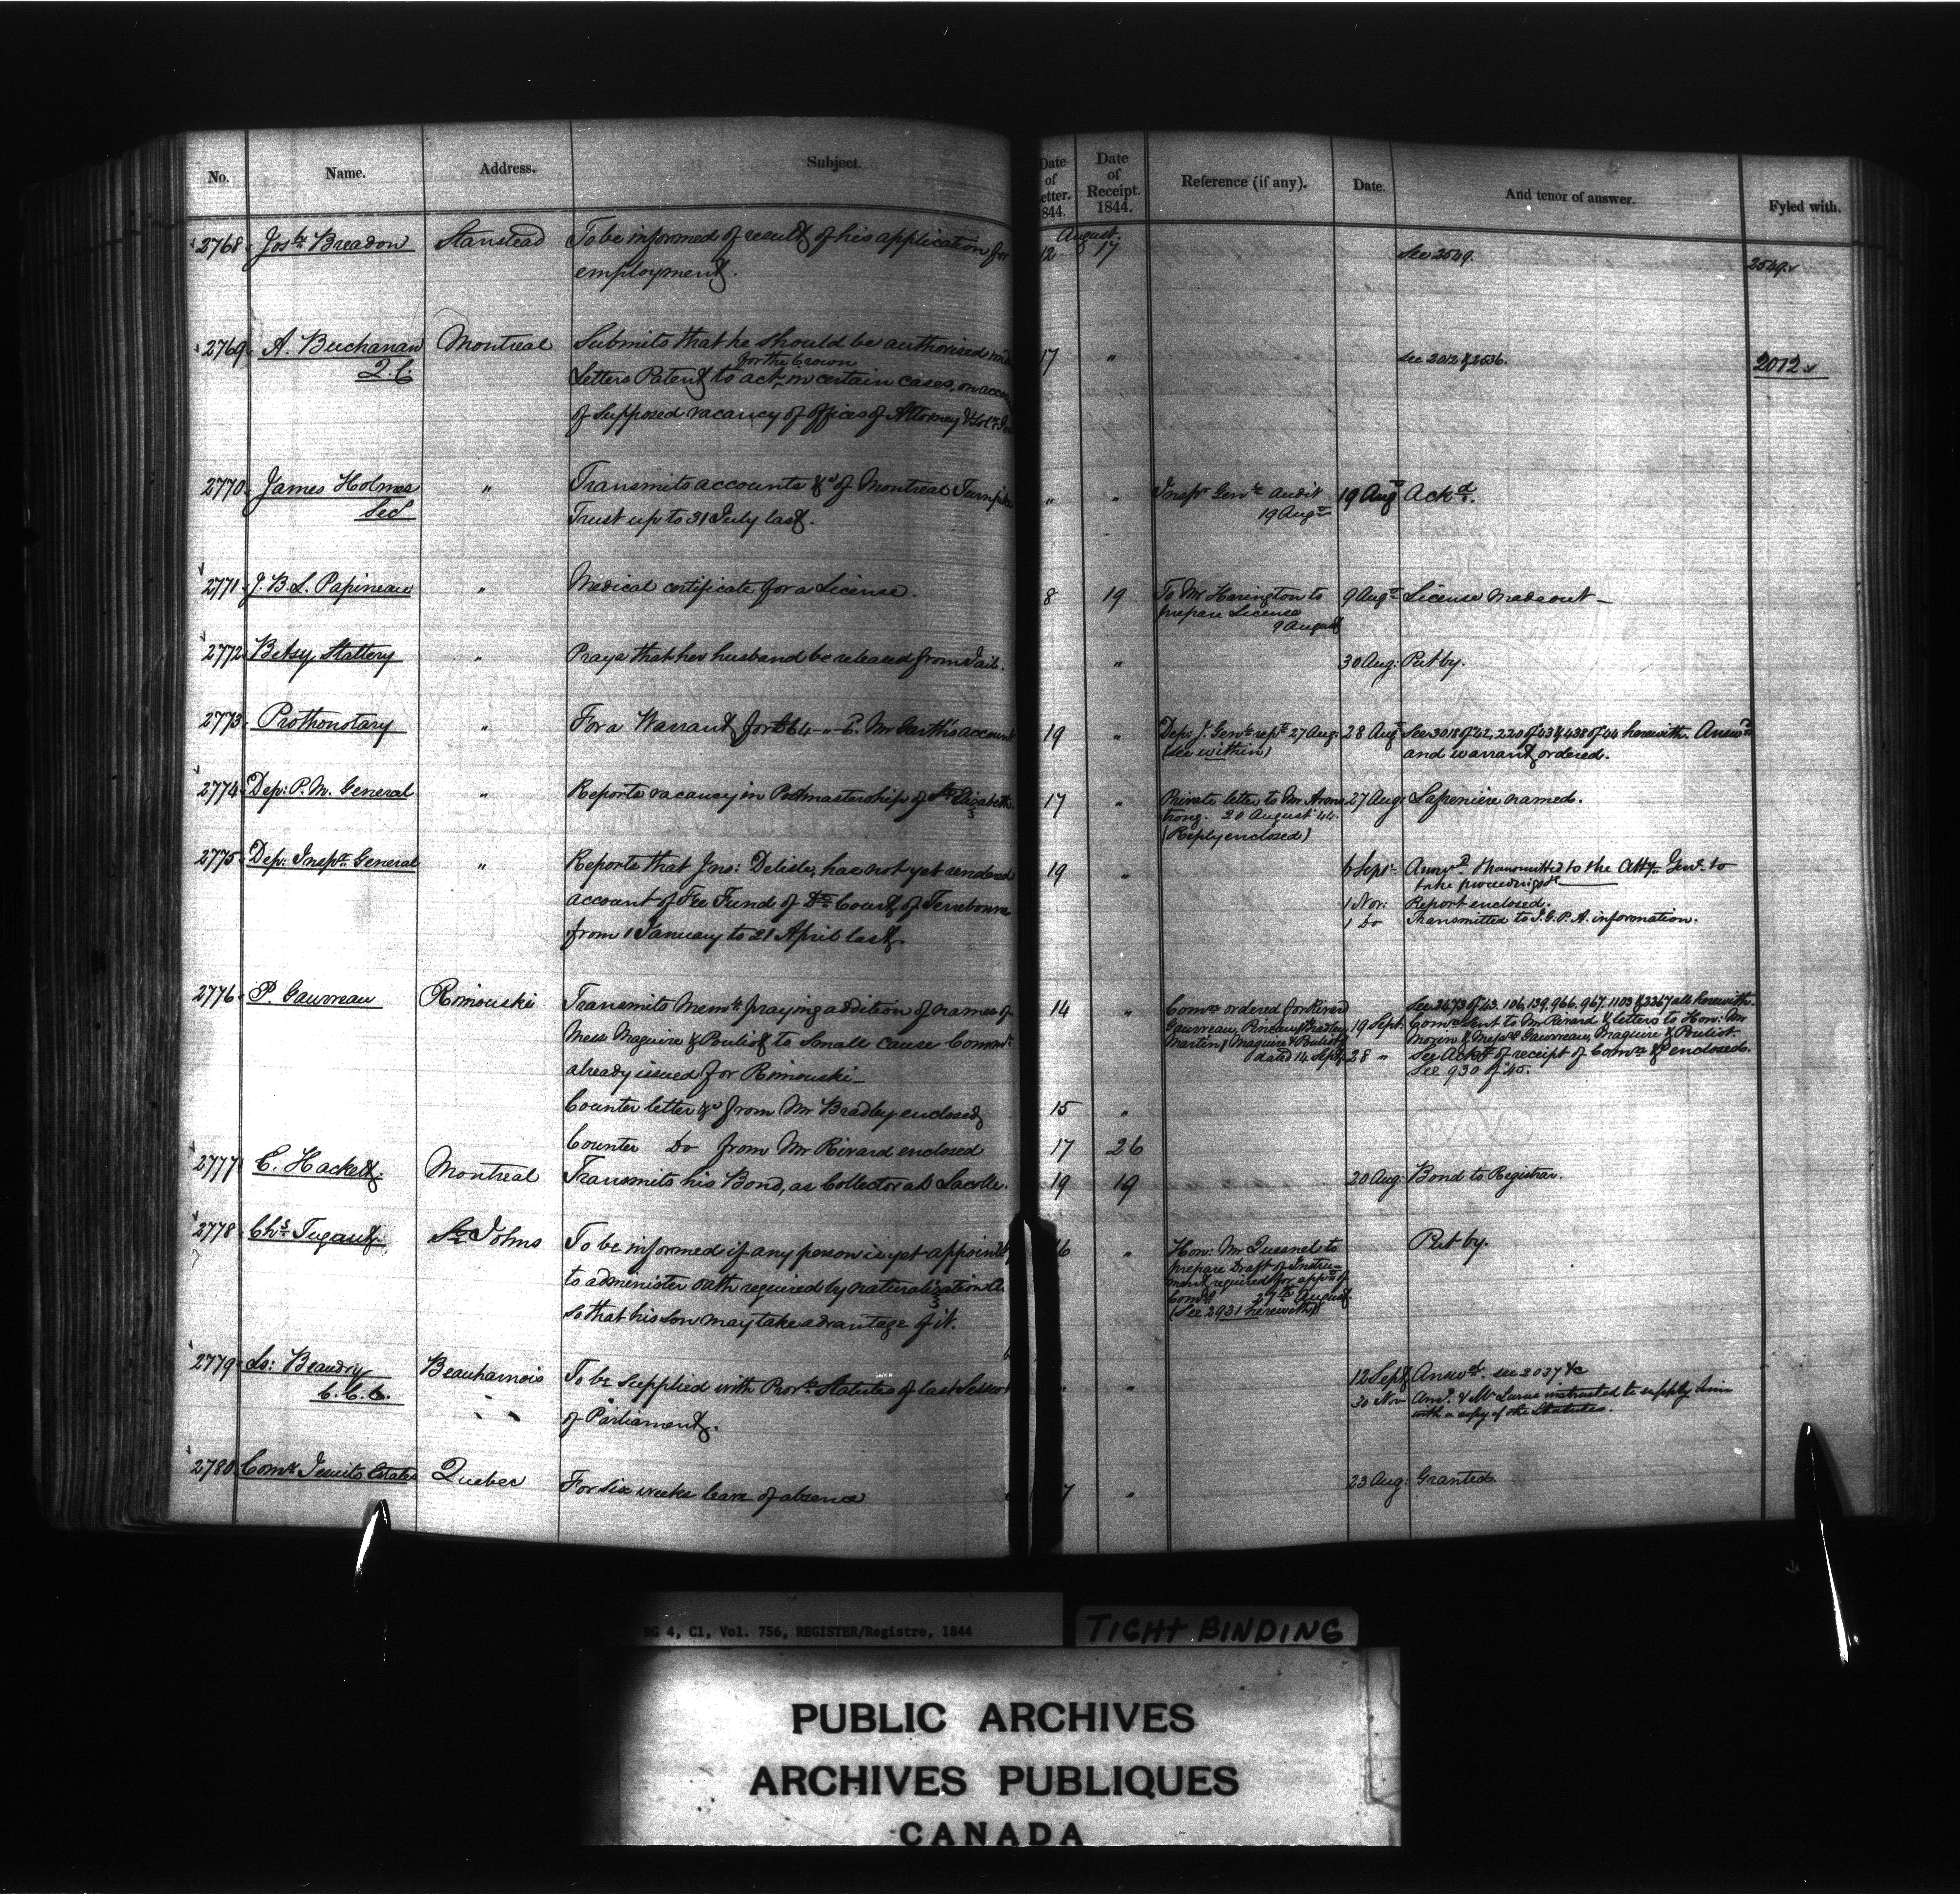 No. Name. Address. Subject. Date of Letter. 1844. Date of Receipt. 1844. Reference (if any). Date. And tenor of answer. Fyled with.
August.
2768 Jos. Breadon Stanstead To be informed of result of his application for 12 17 See 2549. 2549
employment.
2769 A. Buchanan Montreal Submits that he should be authorised 17 " See 2012 & 2536. 2012
Q.C. for the Crown
Letters Patent to act in certain cases, on
of supposed vacancy of offices of Attorney &
2770 James Holmes " Transmits accounts &c of Montreal Turnpike " " Inspr Genl to Audit 19 Augt Ackd.
Secy Trust up to 31 July last. 19 Augt
2771 J. B. L. Papineau " Medical certificate for a License. 8 19 To Mr Harington to 9 Augt License made out—
prepare License
9 August
2772 Betsy Slattery " Prays that her husband be released from Jail. " 30 Aug: Put by.
2773 Prothonotary " For a Warrant for £64 " Mr Garth's account 19 " Dep: J. Genl rept 27 Aug: 28 Augt See 3018 of 42, 220 of 43 & 438 of 44 herewith. Answd
(see within) and warrant ordered.
2774 Dep: P. M. General " Reports vacancy in Postmastership of St Elizabeth 17 " Private letter to Mr Arms 27 Aug: Laperière named.
trong. 20 August 44.
(Reply enclosed)
2775 Dep. Inspr. General " Reports that Jno: Delisle, has not yet rendered 19 " 6 Sepr. Answd. transmitted to the Atty. Genl. to
take proceedings &c
account of Fee Fund of Dt Court of Terrebonne 1 Nov: Report enclosed.
from 1 January to 21 April last. 1 Do Transmitted to I.G.P.A. information.
2776 P. Gauvreau Rimouski Transmits Meml praying addition of names of 14 " Comn ordered for Rivard See 2473 of 43. 106, 139, 966, 967, 1103 & 2267 all herewith.
Mess Maguire & Pouliot to Small cause Commn Gauvreau, Bradley 19 Sept. Comn sent to Mr Rivard & letters to Hon: Mr
Martin, Maguire & Pouliot Morin & Messrs Gauvreau, Maguire & Pouliot.
dated 14 Sept. 28 " See Ackt of receipt of Comn &c enclosed.
already issued for Rimouski— See 930 of 45.
Counter letter &c from Mr Bradley enclosed 15 "
Counter Do from Mr Rivard enclosed 17 26
2777 C. Hackett Montreal Transmits his Bond, as Collector at Lacolle. 19 19 20 Aug: Bond to Registrar.
2778 Chs Tugault St Johns To be informed if any person is yet appointed 16 " Hon: Mr Quesnel to Put by.
prepare Draft of Instru-
to administer oath required by naturalization ment required for appt of
Comrs 27th August
so that his son may take advantage of it. (See 2931 herewith)
2779 Ls: Beaudry Beauharnois To be supplied with Provl Statutes of last Session " " 12 Sept Answd. see 3037 &c
C.C.C. " " of Parliament. 30 Nov Ansd. & Mr instructed to supply him
with a copy of the Statutes.
2780 Comr Jesuits Estates Quebec For six weeks leave of absence 7 " 23 Aug: Granted.
RG 4, C1, Vol. 756, REGISTER/Registre, 1844
TIGHT BINDING
PUBLIC ARCHIVES
ARCHIVES PUBLIQUES
CANADA